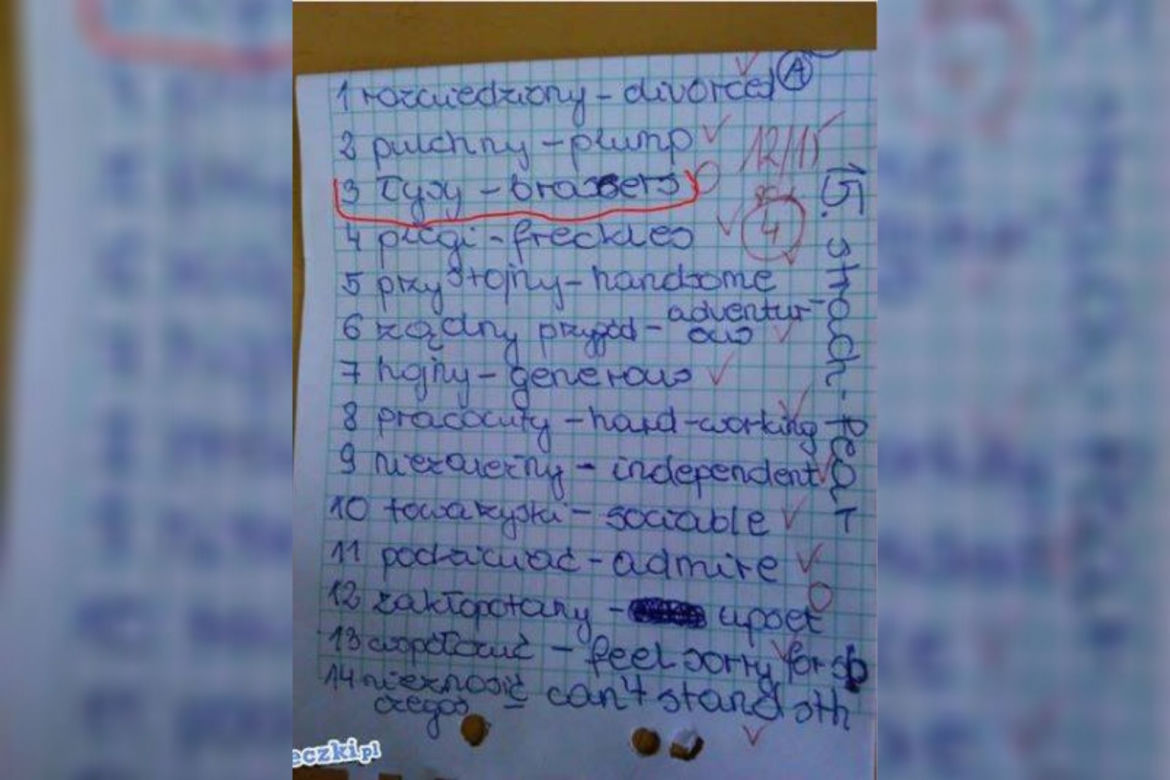 1 rozwiedziony - divorced A
2 pulchny - plump
12/15
3 łysy - brazzers
4 piegi - freckles
4
5 przystojny - handsome
6 rządny przygód - adventur-
ous
7 hojny - generous
8 pracowity - hard-working
9 niezależny - independent
10 towarzyski - sociable
11 podziwiać - admire
12 zakłopotany - upset
13 współczuć - feel sorry for sb
14 nieznosić
czegoś - can't stand sth
15. strach - fear
eczki.pl